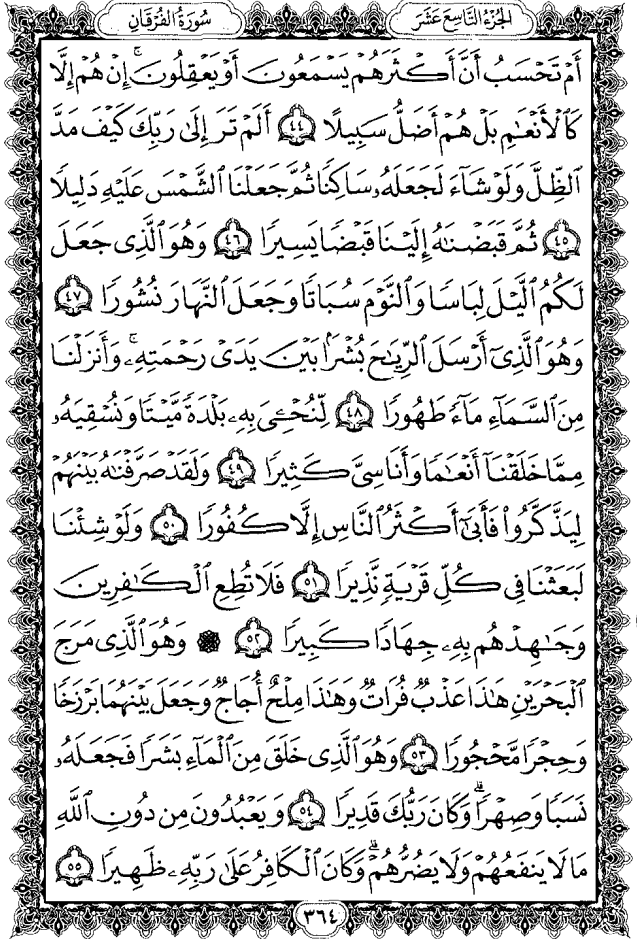 الجُزْءُ التَّاسِعَ عَشَرَ
سُورَةُ الفُرْقَانِ
أَمْ تَحْسَبُ أَنَّ أَكْثَرَهُمْ يَسْمَعُونَ أَوْ يَعْقِلُونَ ۚ إِنْ هُمْ إِلَّا
كَٱلْأَنْعَٰمِ بَلْ هُمْ أَضَلُّ سَبِيلًا ٤٤ أَلَمْ تَرَ إِلَىٰ رَبِّكَ كَيْفَ مَدَّ
ٱلظِّلَّ وَلَوْ شَآءَ لَجَعَلَهُۥ سَاكِنًا ثُمَّ جَعَلْنَا ٱلشَّمْسَ عَلَيْهِ دَلِيلًا
٤٥ ثُمَّ قَبَضْنَٰهُ إِلَيْنَا قَبْضًا يَسِيرًا ٤٦ وَهُوَ ٱلَّذِى جَعَلَ
لَكُمُ ٱلَّيْلَ لِبَاسًا وَٱلنَّوْمَ سُبَاتًا وَجَعَلَ ٱلنَّهَارَ نُشُورًا ٤٧
وَهُوَ ٱلَّذِىٓ أَرْسَلَ ٱلرِّيَٰحَ بُشْرًۢا بَيْنَ يَدَىْ رَحْمَتِهِۦ ۚ وَأَنزَلْنَا
مِنَ ٱلسَّمَآءِ مَآءً طَهُورًا ٤٨ لِّنُحْۦِىَ بِهِۦ بَلْدَةً مَّيْتًا وَنُسْقِيَهُۥ
مِمَّا خَلَقْنَآ أَنْعَٰمًا وَأَنَاسِىَّ كَثِيرًا ٤٩ وَلَقَدْ صَرَّفْنَٰهُ بَيْنَهُمْ
لِيَذَّكَّرُوا۟ فَأَبَىٰٓ أَكْثَرُ ٱلنَّاسِ إِلَّا كُفُورًا ٥٠ وَلَوْ شِئْنَا
لَبَعَثْنَا فِى كُلِّ قَرْيَةٍ نَّذِيرًا ٥١ فَلَا تُطِعِ ٱلْكَٰفِرِينَ
وَجَٰهِدْهُم بِهِۦ جِهَادًا كَبِيرًا ٥٢ ۞ وَهُوَ ٱلَّذِى مَرَجَ
ٱلْبَحْرَيْنِ هَٰذَا عَذْبٌ فُرَاتٌ وَهَٰذَا مِلْحٌ أُجَاجٌ وَجَعَلَ بَيْنَهُمَا بَرْزَخًا
وَحِجْرًا مَّحْجُورًا ٥٣ وَهُوَ ٱلَّذِى خَلَقَ مِنَ ٱلْمَآءِ بَشَرًا فَجَعَلَهُۥ
نَسَبًا وَصِهْرًا ۗ وَكَانَ رَبُّكَ قَدِيرًا ٥٤ وَيَعْبُدُونَ مِن دُونِ ٱللَّهِ
مَا لَا يَنفَعُهُمْ وَلَا يَضُرُّهُمْ ۗ وَكَانَ ٱلْكَافِرُ عَلَىٰ رَبِّهِۦ ظَهِيرًا ٥٥
٣٦٤